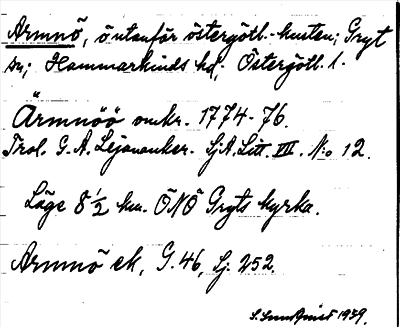 Armnö, ö utanför östergötl.-kusten; Gryt
sn; Hammarkinds hd; Östergötl. l.
Ärmnöö omkr. 1774-76.
Trol. G. A. Lejonanker. SjA. Litt. VII. N:o 12.
Läge 8 1/2 km. ÖNÖ Gryts kyrka.
Armnö ek, G. 46, Sj. 252.
S. Sundquist 1939.